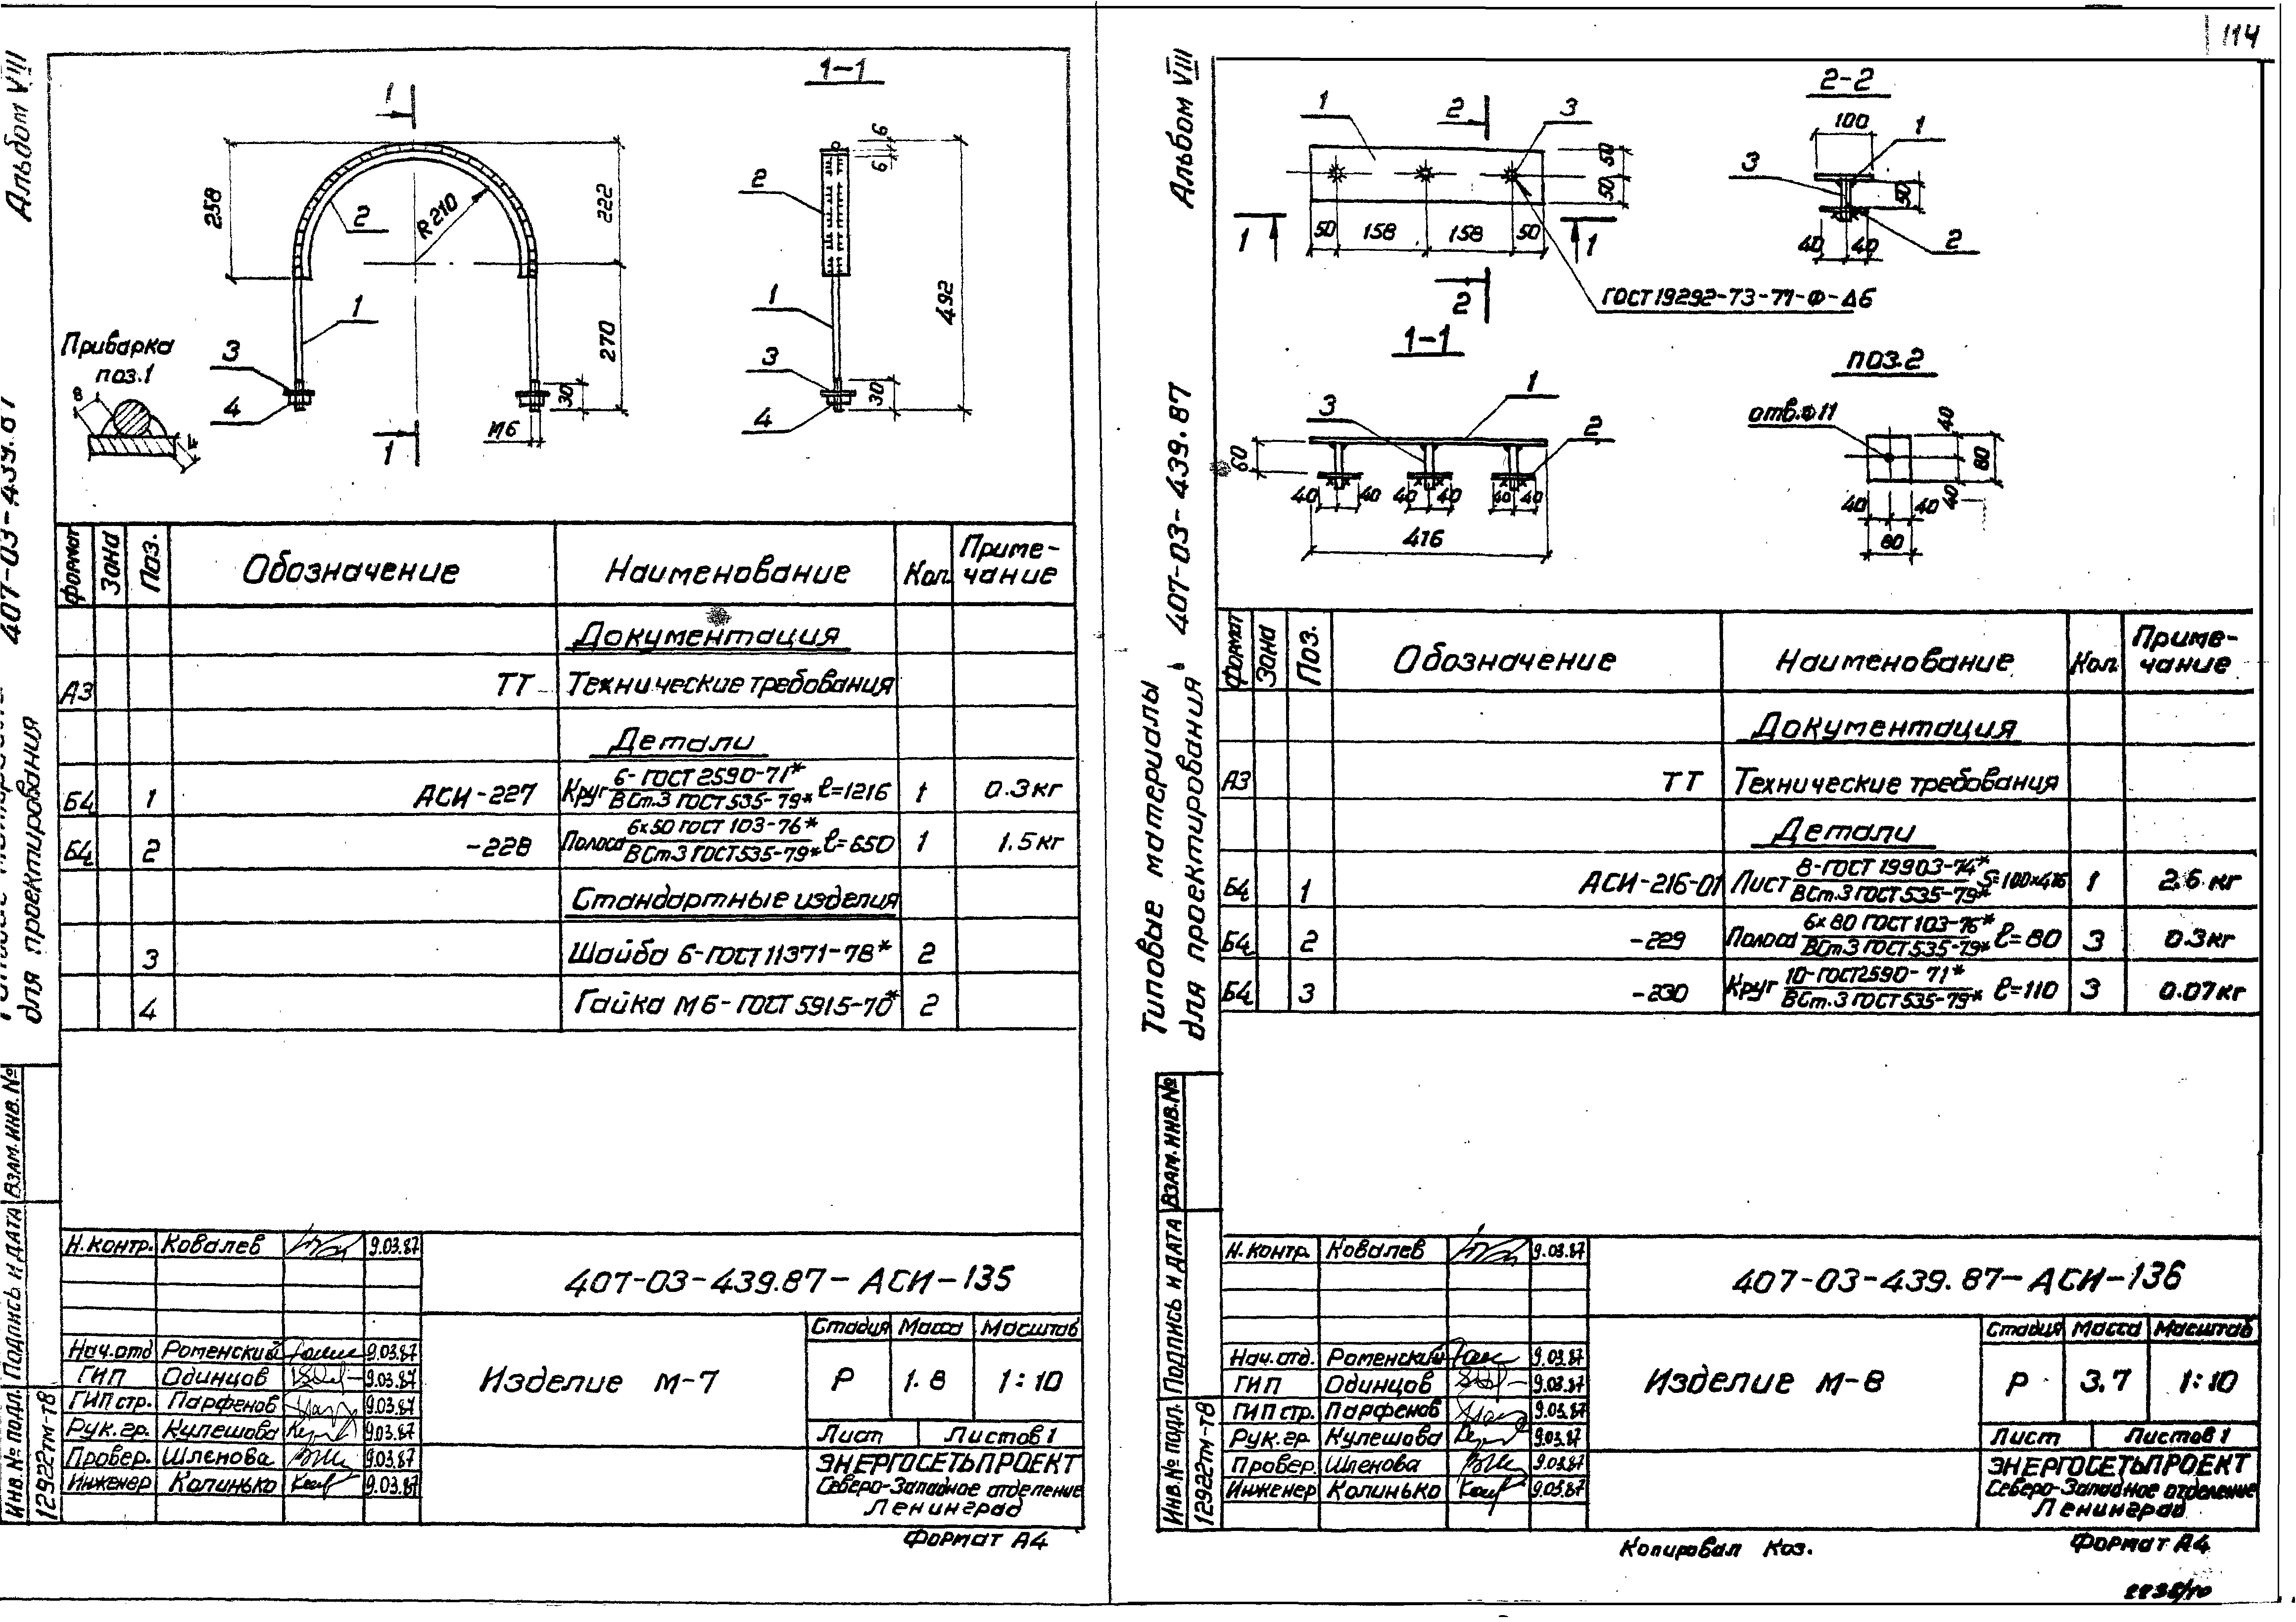 114
Альбом VIII
407-03-439.87
для проектирования
1-1
1
258
222
R 210
2
1
270
Приварка
поз.1
8
4
3
4
30
М6
1
6
6
2
1
492
3
4
30
Формат
Зона
Поз.
Обозначение
Наименование
Кол
Приме-
чание
Документация
А3 ТТ Технические требования
Детали
Б4 1 АСИ-227 Круг 6-ГОСТ 2590-71* / ВСт.3 ГОСТ 535-79* ℓ=1216 1 0.3 кг
Б4 2 -228 Полоса 6x50 ГОСТ 103-76* / ВСт3 ГОСТ 535-79* ℓ=650 1 1.5 кг
Стандартные изделия
3 Шайба 6-ГОСТ 11371-78* 2
4 Гайка М6-ГОСТ 5915-70* 2
Взам. инв. №
Подпись и дата
Инв. № подл.
12922тм-т8
Н.контр. Ковалев 9.03.87
407-03-439.87-АСИ-135
Нач.отд Роменский 9.03.87
ГИП Одинцов 9.03.87
ГИП стр. Парфенов 9.03.87
Рук.гр. Кулешова 9.03.87
Провер. Шленова 9.03.87
Инженер Калинько 9.03.87
Изделие М-7
Стадия Масса Масштаб
Р 1.8 1:10
Лист Листов 1
ЭНЕРГОСЕТЬПРОЕКТ
Северо-Западное отделение
Ленинград
Формат А4
Альбом VIII
407-03-439.87
Типовые материалы
для проектирования
1
2
3
50
50
50 158 158 50
1 1
2
ГОСТ 19292-73-Т1-Ф-Δ6
2-2
100
1
3
50
40 40
2
1-1
3
1
2
60
40 40 40 40 40 40
416
поз.2
отв.ф11
40
80
40
40 40
80
Формат
Зона
Поз.
Обозначение
Наименование
Кол
Приме-
чание
Документация
А3 ТТ Технические требования
Детали
Б4 1 АСИ-216-01 Лист 8-ГОСТ 19903-74* / ВСт.3 ГОСТ 535-79* S=100x416 1 2.6 кг
Б4 2 -229 Полоса 6x80 ГОСТ 103-76* / ВСт.3 ГОСТ 535-79* ℓ=80 3 0.3 кг
Б4 3 -230 Круг 10-ГОСТ 2590-71* / ВСт.3 ГОСТ 535-79* ℓ=110 3 0.07 кг
Взам. инв. №
Подпись и дата
Инв. № подл.
12922тм-т8
Н.контр. Ковалев 9.03.87
407-03-439.87-АСИ-136
Нач.отд. Роменский 9.03.87
ГИП Одинцов 9.03.87
ГИП стр. Парфенов 9.03.87
Рук.гр. Кулешова 9.03.87
Провер. Шленова 9.03.87
Инженер Калинько 9.03.87
Изделие М-8
Стадия Масса Масштаб
Р 3.7 1:10
Лист Листов 1
ЭНЕРГОСЕТЬПРОЕКТ
Северо-Западное отделение
Ленинград
Копировал Коз.
Формат А4